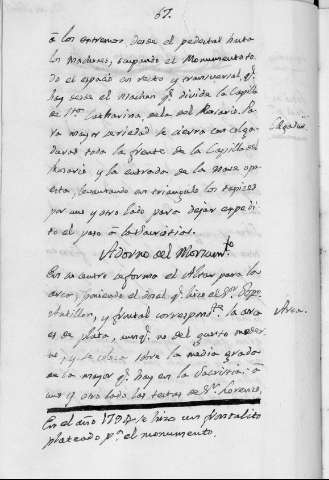 67.
â los extremos desde el pedestal hasta
los maderos, ocupando el Monumento to-
do el espacio en recto y transversal, q.ᵉ
hay desde el machon q.ᵉ divide la Capilla
de S.ᵗᵃ Catharina, a la del Rosario. Pa-
ra mayor seriedad se cierra con colga-
duras toda la frente de la Capilla del
Rosario y la entrada de la Nave opu-
esta, levantando en triangulo los tapices
por uno y otro lado para dejar expedi-
to el paso â la Sacristia.
Colgadur.ˢ
Adorno del Monum.ᵗᵒ
En su centro se forma el Altar para la
arca, poniendo el dosel q.ᵉ hizo el S.ᵒʳ
y frontal correspond.ᵗᵉ la arca
es de plata, aunq.ᵉ no del gusto moder-
no, y se coloca sobre la media grada
de la mayor q.ᵉ hay en la Sacristia: â
uno y otro lado las testas de S.ⁿ Lorenzo,
Arca.
En el año 179 se hizo un frontalito
plateado p.ᵃ el monumento.